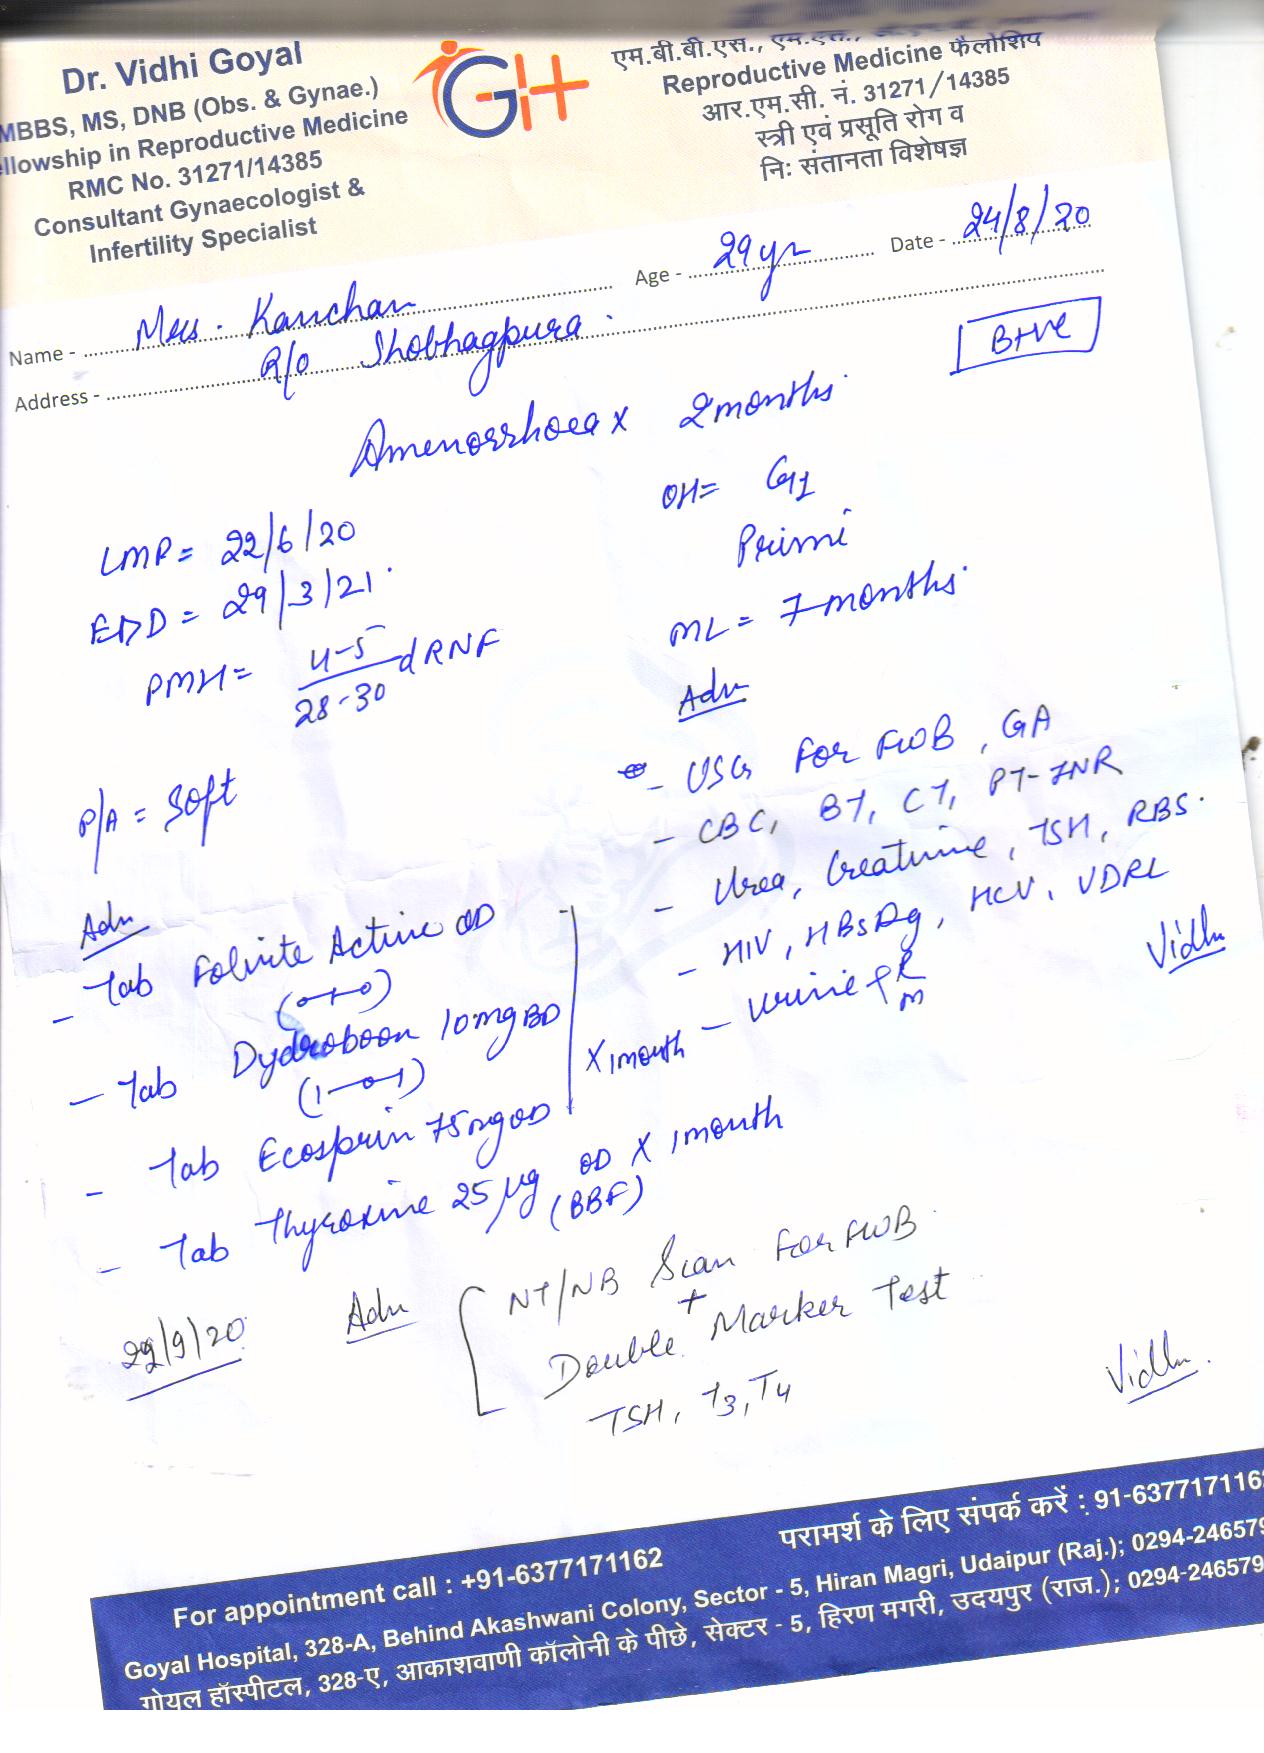 Dr. Vidhi Goyal
MBBS, MS, DNB (Obs. & Gynae.)
ellowship in Reproductive Medicine
RMC No. 31271/14385
Consultant Gynaecologist &
Infertility Specialist
GH
एम.बी.बी.एस., एम.एस.,
Reproductive Medicine फैलोशिप
आर.एम.सी. नं. 31271/14385
स्त्री एवं प्रसूति रोग व
नि: संतानता विशेषज्ञ
Name - Mrs. Kanchan Age - 29yr Date - 24/8/20
Address - R/o Shobhagpura.
B+ve
Amenorrhoea x 2 months
OH = G1
Primi
ML = 7 months
LMP = 22/6/20
EDD = 29/3/21
PMH = 4-5/28-30 d RNF
P/A = Soft
Adv
- USG For FWB, GA
- CBC, BT, CT, PT-INR
- Urea, Creatinine, TSH, RBS.
- HIV, HBsAg, HCV, VDRL
- Urine R/m
Vidhi
Adv
- Tab Folvite Active OD
(0-1-0)
- Tab Dydroboon 10mg BD
(1-0-1)
x 1 month
- Tab Ecosprin 75mg OD
- Tab Thyroxine 25 µg OD x 1 month
(BBF)
29/9/20 Adv
NT/NB Scan For FWB
+
Double Marker Test
TSH, T3, T4
Vidhi.
For appointment call : +91-6377171162
परामर्श के लिए संपर्क करें : 91-637717116
Goyal Hospital, 328-A, Behind Akashwani Colony, Sector - 5, Hiran Magri, Udaipur (Raj.); 0294-246579
गोयल हॉस्पीटल, 328-ए, आकाशवाणी कॉलोनी के पीछे, सेक्टर - 5, हिरण मगरी, उदयपुर (राज.); 0294-246579